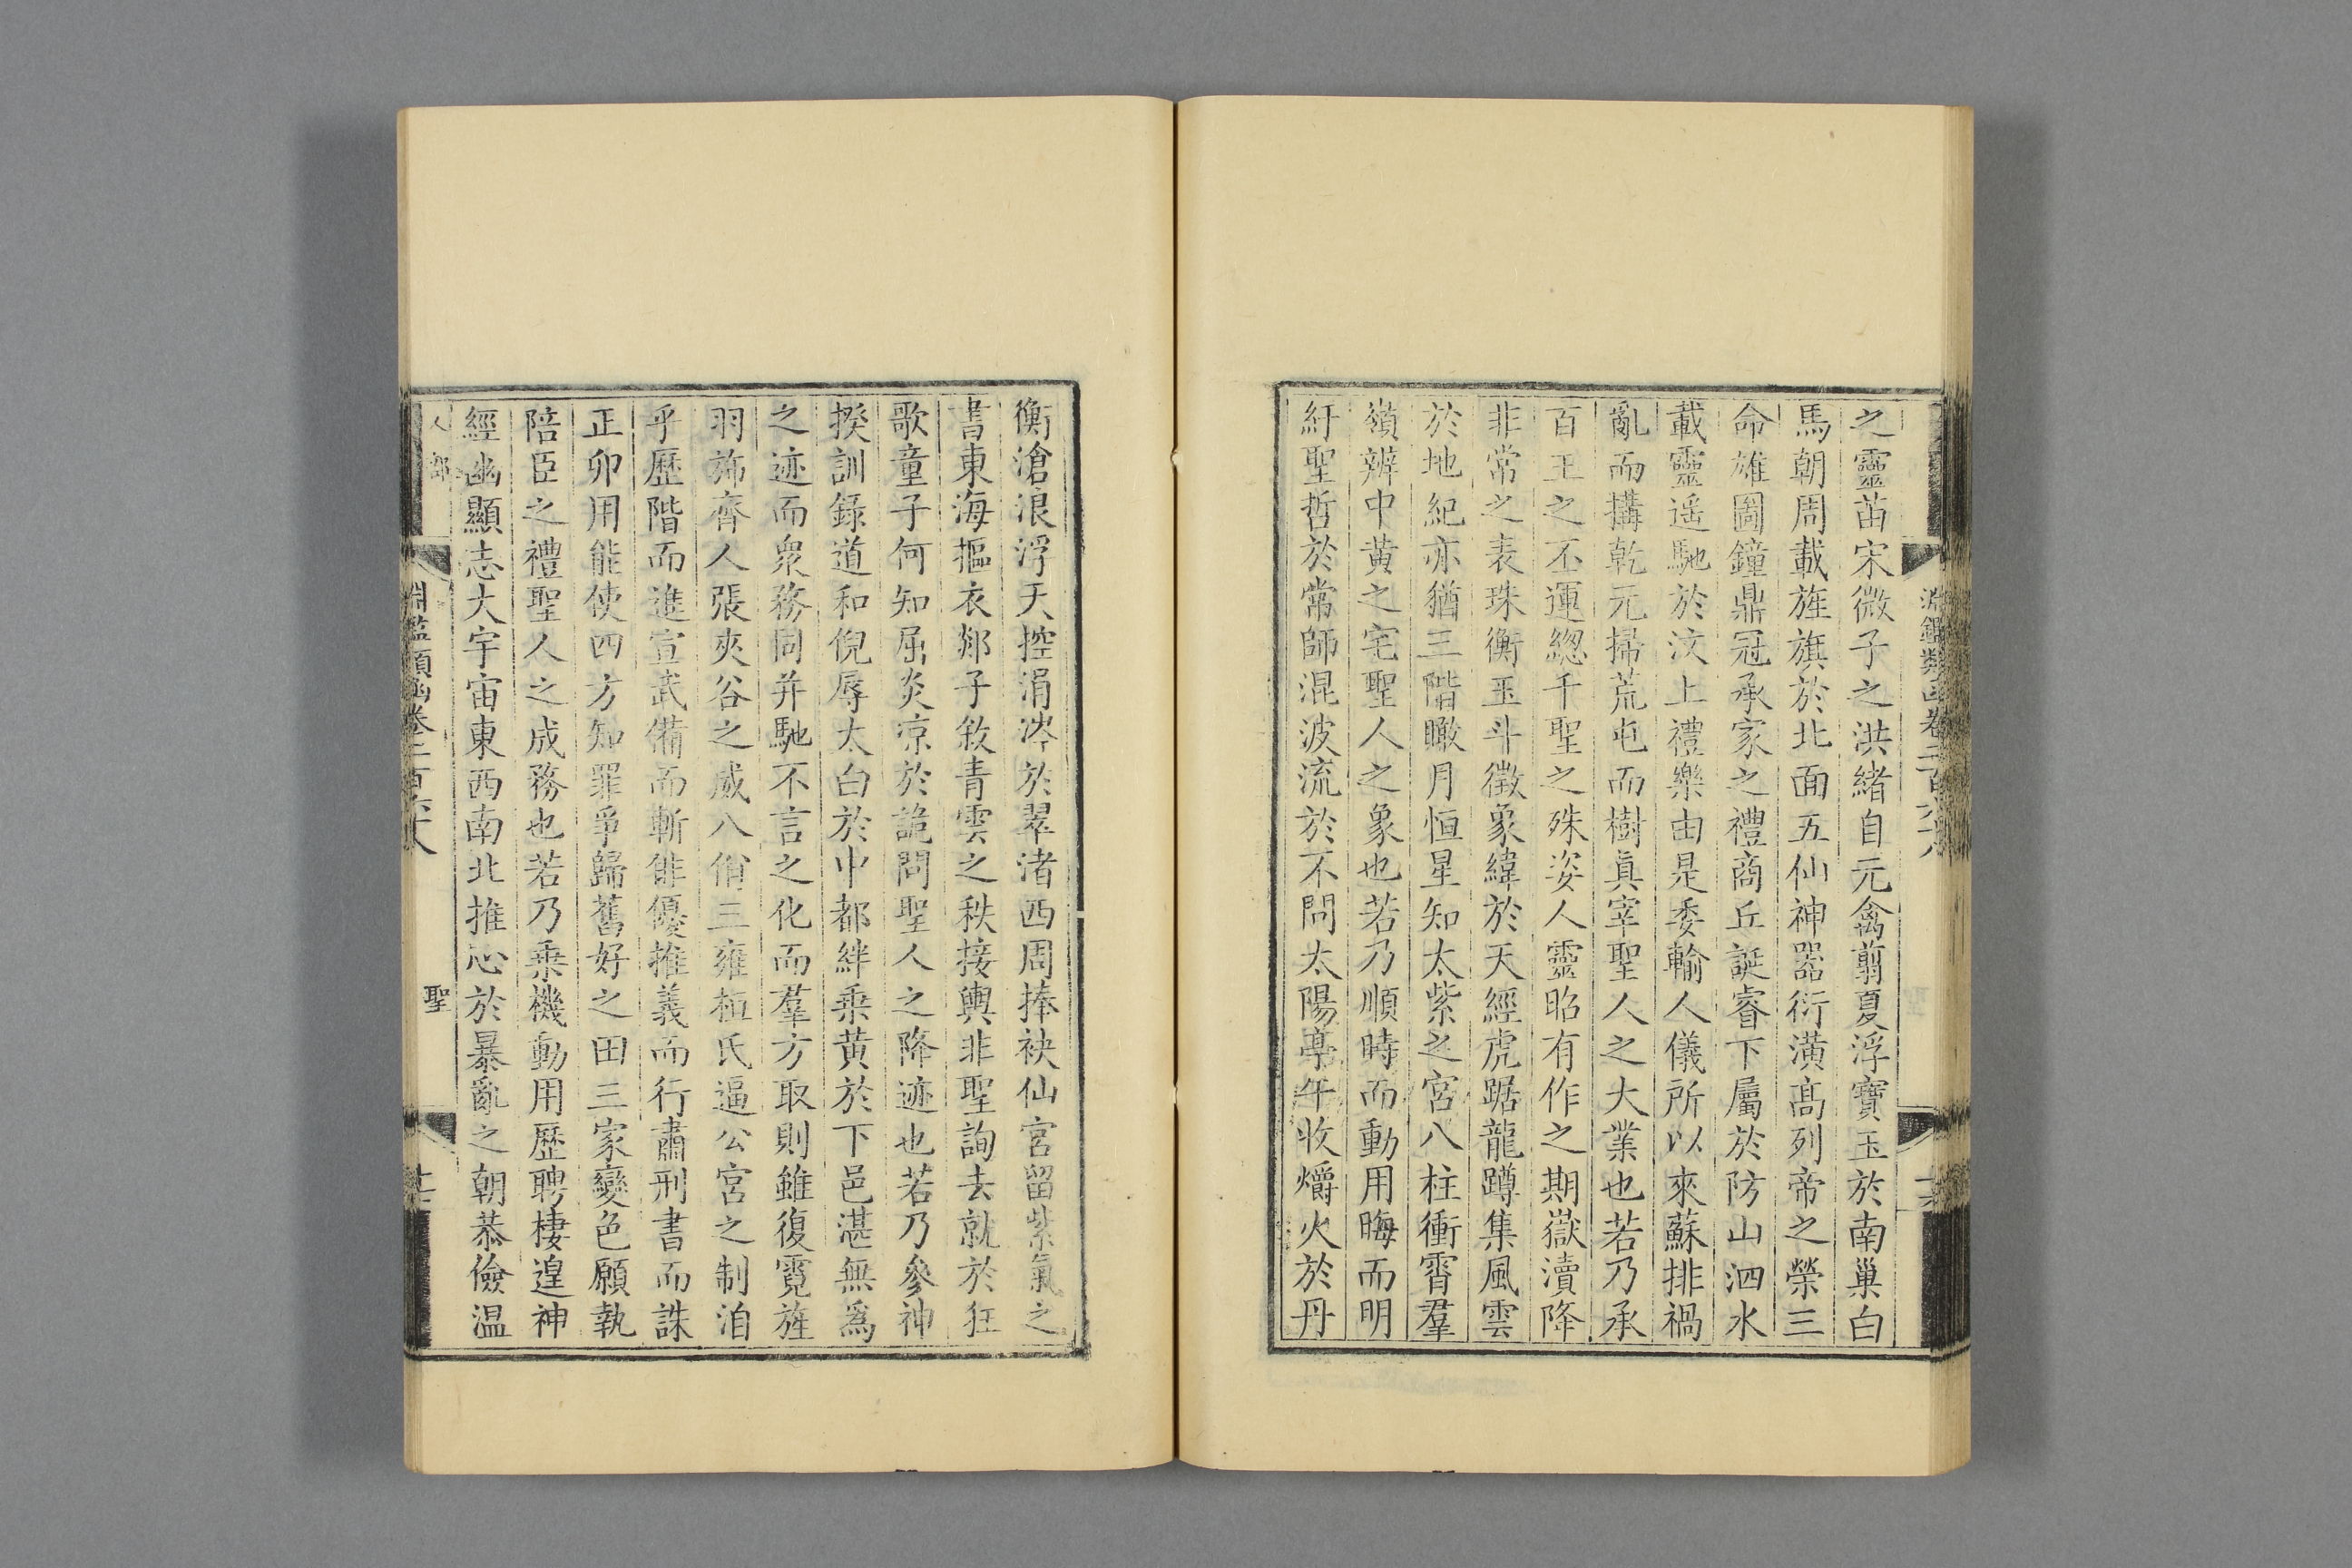 之靈苗宋微子之洪緒自元禽翦夏浮寶玉於南巢白
馬朝周載旌旗於北面五仙神器衍潢高列帝之榮三
命雄圖鐘鼎冠承家之禮商丘誕睿下屬於防山泗水
載靈遥馳於汶上禮樂由是委輸人儀所以來蘇排禍
亂而搆乾元掃荒屯而樹眞宰聖人之大業也若乃承
百王之丕運總千聖之殊姿人靈昭有作之期嶽瀆降
非常之表珠衡玉斗徵象緯於天經虎踞龍蹲集風雲
於地紀亦猶三階瞰月恒星知太紫之宮八柱衝霄羣
嶺辨中黄之宅聖人之象也若乃順時而動用晦而明
紆聖哲於常師混波流於不問太陽亭午收爝火於丹
衡滄浪浮天控涓涔於翠渚西周捧袂仙宮留紫氣之
書東海摳衣郯子敘青雲之秩接輿非聖詢去就於狂
歌童子何知屈炎凉於詭問聖人之降迹也若乃參神
揆訓録道和倪辱太白於中都絆乗黄於下邑湛無爲
之迹而衆務同并馳不言之化而羣方取則雖復霓旌
羽旆齊人張夾谷之威八佾三雍桓氏逼公宮之制洎
乎歷階而進宣武備而斬俳優推義而行肅刑書而誅
正卯用能使四方知罪爭歸舊好之田三家變色願執
陪臣之禮聖人之成務也若乃乗機動用歷聘棲遑神
經幽顯志大宇宙東西南北推心於暴亂之朝恭儉温
人部
淵鑑類函卷二百六十八
聖